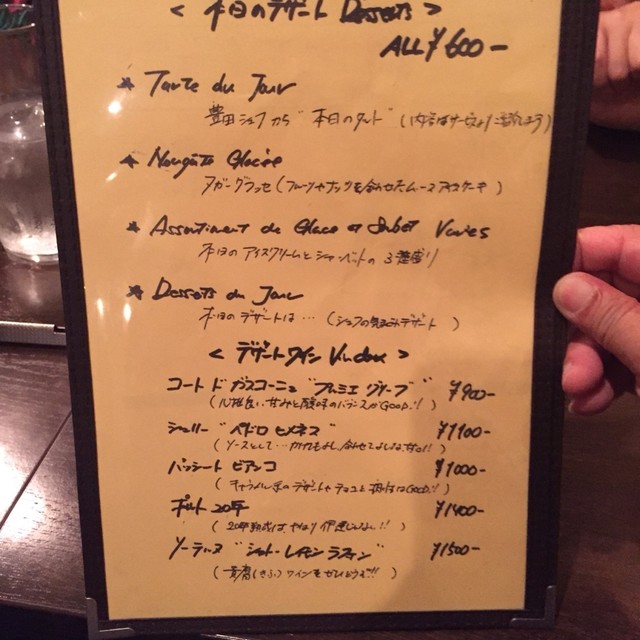 < 本日のデザート Desserts >
ALL ¥600-
★ Tarte du Jour
豊田シェフから"本日のタルト"(内容はサービスより
★ Nougats Glacée
ヌガーグラッセ(フルーツやナッツを合わせたムースアイスケーキ)
★ Assortiment de Glace et Sorbet Variés
本日のアイスクリームとシャーベットの3種盛り
★ Desserts du Jour
本日のデザートは…(シェフの デザート)
< デザートワイン Vin doux >
コート ド ガスコーニュ "プルミエ グリーブ" ¥900-
(心地良い甘みと酸味のバランスがGOOD!!)
シェリー "ペドロ ヒメネス" ¥1100-
(ソースとして…かけてもよし、合わせてよしなサロ!!)
パッシート ビアンコ ¥1000-
(キャラメル系のデザートやチョコと相性はGOOD!!)
ポルト 20年 ¥1400-
(20年熟成は、やはり伊達じゃない!!)
ソーテルヌ "シャトー・レイモン ラフォン" ¥1500-
(貴腐(きふ)ワインをぜひどうぞ!!)